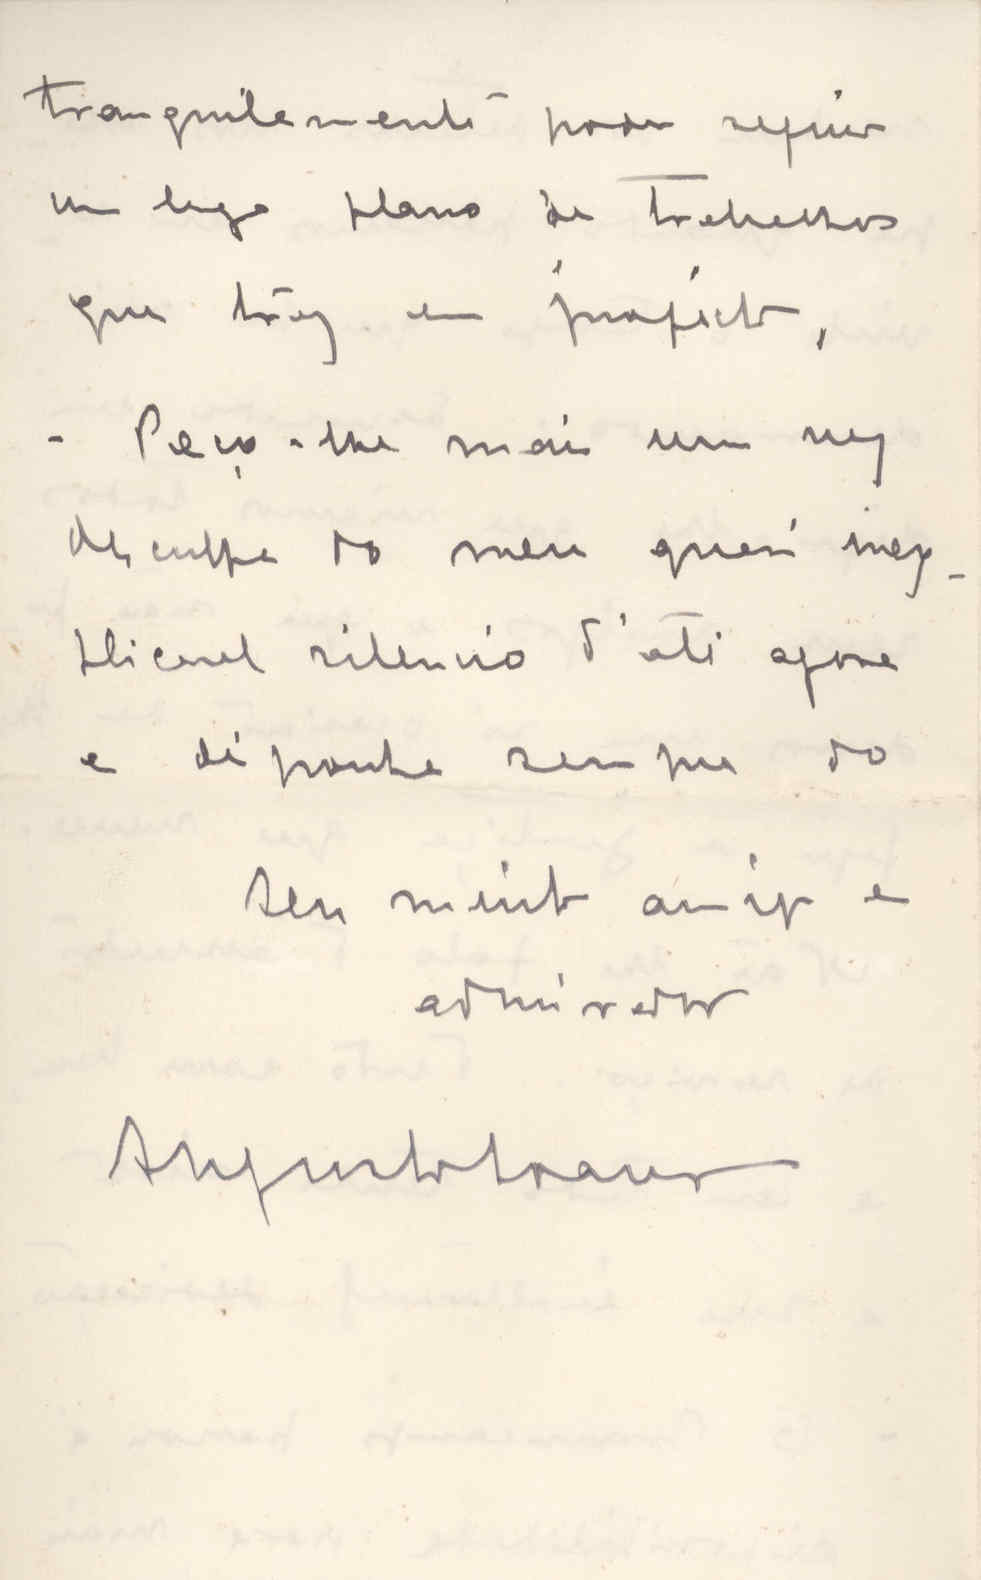 tranquilamente poder seguir
um largo plano de trabalhos
que trag em projecto,
- Peço-lhe mais uma vez
desculpa do meu quasi inex-
plicavel silencio d'até agora
e disponha sempre do
seu muito amigo e
admirador